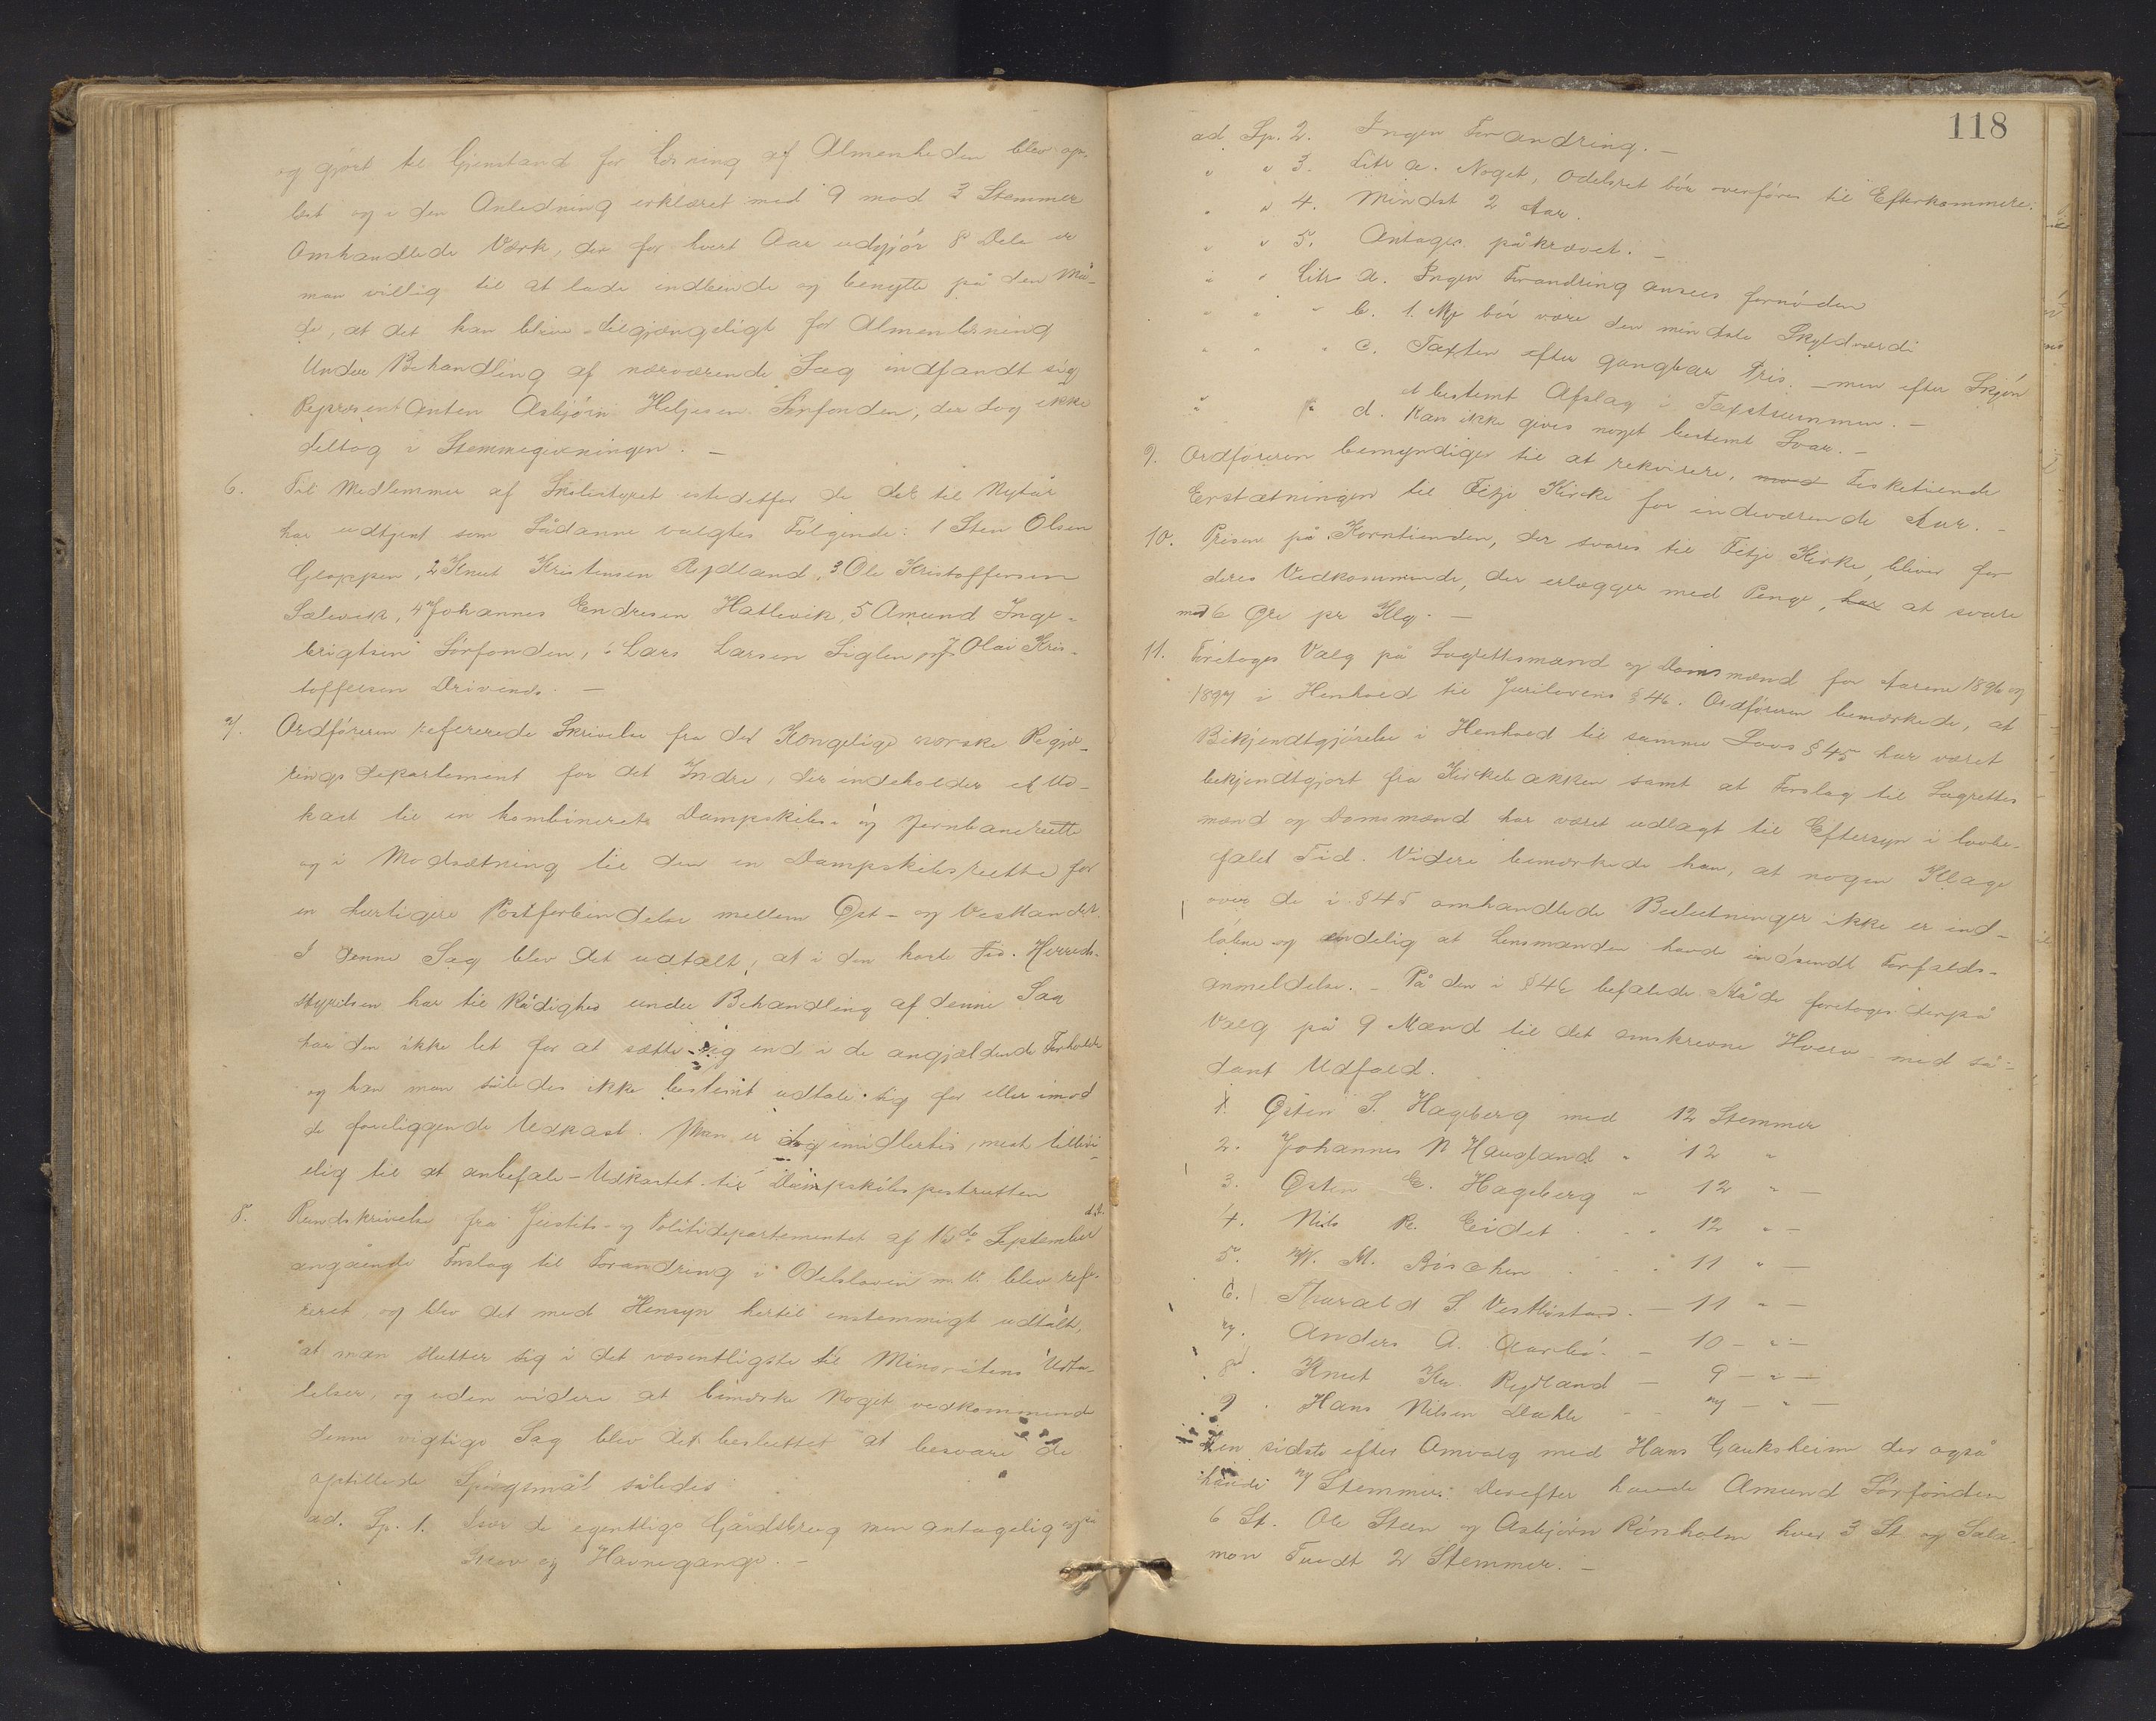 og gjort til Gjenstand for Læsning af Almenheden blev op-
læst og i den Anledning erklæret med 9 mod 3 Stemmer
Omhandlede Værk, der for hvert Aar udgjør 8 Dele er
man villig til at lade indbinde og benytte på den Må-
de, at det kan blive tilgjængeligt for Almenlæsning
Under Behandling af nærværende Sag indfandt sig
Repræsentanten Asbjørn Heljesen Sørfonden, der dog ikke
deltog i Stemmegivningen. –
6. Til Medlemmer af Skolestyret istedetfor de der til Nytår
har udtjent som Sådanne valgtes Følgende: 1 Sten Olsen
Gloppen, 2 Knut Kristensen Rydland, 3 Ole Kristoffersen
Sælevik, 4 Johannes Endresen Hatlevik, 5 Amund Inge-
brigtsen Sørfonden, 6 Lars Larsen Siglen og 7 Olai Kris-
toffersen Drivenes. –
7. Ordføreren refererede Skrivelse fra det Kongelige norske Regje-
rings Departement for det Indre, der indeholder et Ud-
kast til en kombineret Dampskibs- og Jernbanerutte
og i Modsætning til den en Dampskibsrutte for
en hurtigere Postforbindelse mellem Øst- og Vestlandet.
I denne Sag blev det udtalt, at i den korte Tid Herreds-
styrelsen har til Rådighed under Behandling af denne Sag
har den ikke let for at sætte sig ind i de angjældende Forholde
og kan man således ikke bestemt udtale sig for eller imod
de foreliggende Udkast. Man er dog imidlertid, mest tilbøi-
elig til at anbefale Udkastet til Dampskibspostrutten
8. Rundskrivelse fra Justits- og Politidepartementet af 16de September d.A.
angående Forslag til Forandring i Odelsloven m.V. blev refe-
reret, og blev det med Hensyn hertil enstemmigt udtalt,
at man slutter sig i det væsentligste til Minoritens Udta-
lelser, og uden videre at bemærke Noget vedkommende
denne vigtige Sag blev det besluttet at besvare de
opstillede Spørgsmål således
ad. Sp. 1. Især de egentlige Gårdsbrug men antagelig også
Skov og Havnegange. –
118
ad. Sp. 2. Ingen Forandring. –
" " 3. Litr a. Noget, Odelsret bør overføres til Efterkommere.
" " 4. Mindst 2 Aar.
" " 5. Antages påkrævet. –
" " Litr a. Ingen Forandring ansees fornøden
" " " b. 1. Mk bør være den mindste Skyldværdi
" " " c. Taxten efter gangbar Pris. – men efter Skjøn
et bestemt Afslag i Taxtsummen. –
" " d. Kan ikke gives noget bestemt Svar. –
9. Ordføreren bemyndiges til at rekvirere, mod Fisketiende
Erstatningen til Fitje Kirke for indeværende Aar. –
10. Prisen på Korntienden, der svares til Fitje Kirke, bliver for
deres Vedkommende, der erlægger med Penge, har at svare
med 6 Øre pr Klg. –
11. Foretoges Valg på Lagrettesmænd og Domsmænd for Aarene 1896 og
1897 i Henhold til Jurilovens § 46. Ordføreren bemærkede, at
Bekjendtgjørelse i Henhold til samme Lovs § 45 har været
bekjendtgjort fra Kirkebakken samt at Forslag til Lagrettes
mænd og Domsmænd har været udlagt til Eftersyn i lovbe-
falet Tid. Videre bemærkede han, at nogen Klage
over de i § 45 omhandlede Beslutninger ikke er ind-
løbne og endelig at Lensmanden havde indsendt Forfalds-
anmeldelse. – På den i § 46 befalede Måde foretoges derpå
Valg på 9 Mænd til det omskrevne Hverv – med så-
dant Udfald.
1. Østen S. Hageberg med 12 Stemmer
2. Johannes N Haugland " 12 "
3. Østen E. Hageberg " 12 " –
4. Nils R. Eidet " 12 " –
5. W. M. 11 " –
6. Tharald S Vestbøstad. – 11 " –
7. Anders A. Aarbø. – 10 – " –
8. Knut Kr. Rydland – 9 – " –
9. Hans Nilsen Dahle – 7 – " –
Den sidste efter Omvalg med Hans Gauksheim der også
havde 7 Stemmer. Derefter havde Amund Sørfonden
6 St. Ole Steen og Asbjørn Rønholm hver 3 St. og Salo-
mon Tuedt 2 Stemmer. –